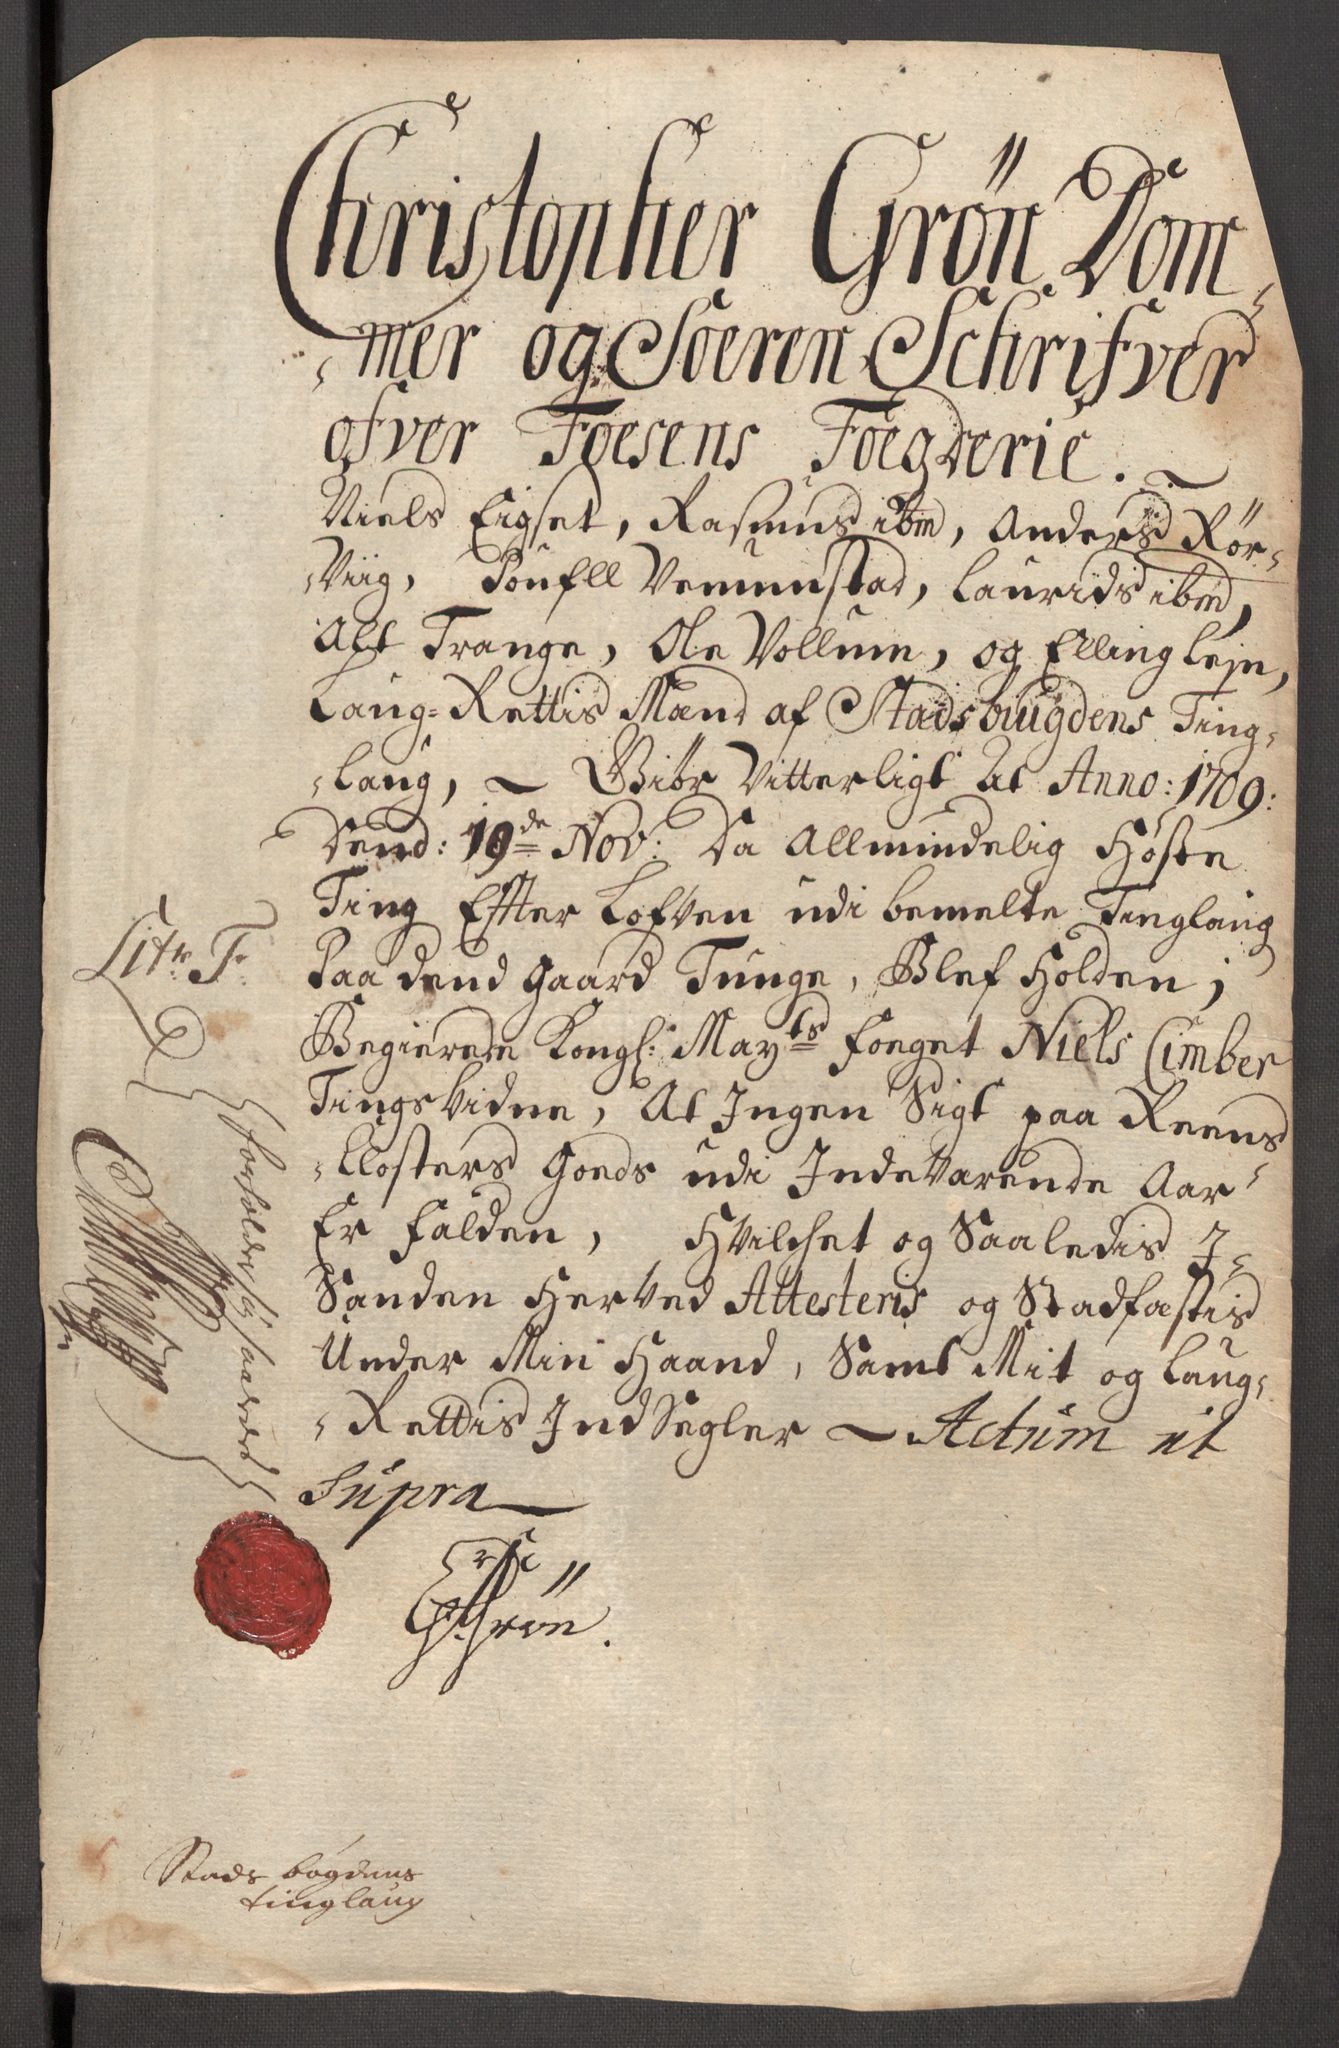 Christopher Grön Dom-
-mer og Soeren Schrifver
ofver Foesens Foegderie.
Niels Eigset, Rasmus ibm, Anders Rör-
-Viig, Poufll Vemunstad, Laurids ibm,
Alt Trange, Ole Vollum, og Elling Lejn,
Laug-Rettis Mænd af Stadsbuugdens Ting-
-laug, Giör Vitterligt At Anno: 1709:
Dend: 19de Nov: Da Allmindelig Höste
Ting Effter Lofven udi bemelte Tinglaug
Paa dend gaard Tunge, Blef Holden;
Begierede Kongl: Mayts Foeget Niels Cimber
Tings Vidne, At Ingen Sigt paa Reens
-Closters Goeds udi IndeVarende Aar
Er falden, Hvilchet og Saaledis I-
Sanden HerVed Attesteris og Stadfæstis
Under Min Haand, Samt Mit og Laug-
-Rettis IndSegler Actum ut
Supra
Grön.
Litr. F.
forholder sig saaved
Stads bögdens
tinglaug